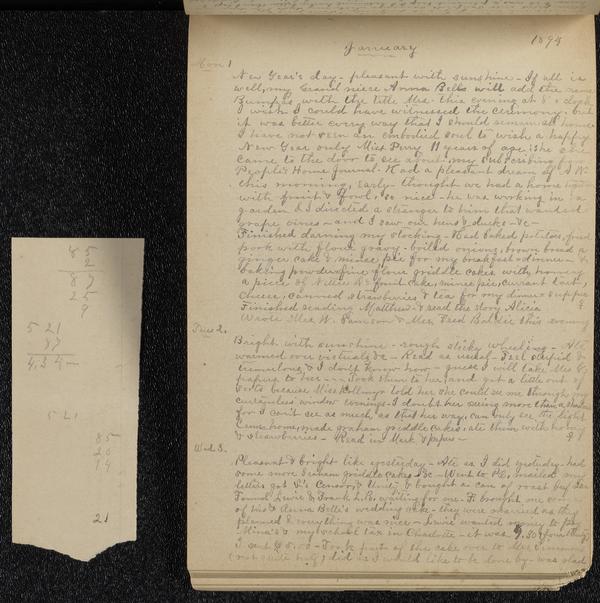 85
2
87
25
9
521
87
434
521
85
20
14
21
January 1894
Mon. 1
New Year's day - pleasant with sunshine - If all is
well, my Grand niece Anna Belle will add the name
Bumpus with the title Mrs. this evening at 8 o'clock
I wish I could have witnessed the ceremony but
it was better every way that I should remain at home
I have not seen an embodied soul to wish a happy
New Year only Miss Perry 11 years of age she
came to the door to see about my subscribing for
People's Home Journal - Had a pleasant dream of
this morning, early - thought we had a home
with fruit & fowl, so nice - he was working in a
garden & I directed a stranger to him that wanted
grape vines - and I saw our hens & ducks - &c -
Finished darning my stockings - Had baked potatoes, fried
pork with flour gravy - boiled onions, brown bread &
ginger cake & mince pie for my breakfast & dinner - &
baking powder fine flour griddle cakes with honey
a piece of Nettie fruit cake, mince pie, currant tart,
cheese, canned strawberries & tea for my dinner & supper
Finished reading Matthew - & read the story Alicia
Wrote Mrs. W. & Mrs. Fred this evening
Tues 2.
Bright with sunshine - rough sticky wheeling - Ate
warmed over victuals &c - Read as usual - Feel &
tremulous, & I don't know how - guess I will take Mrs
papers to her - Took them to her, and got a little out of
sorts because Miss told her she could see me through my
curtainless window evenings - I doubt her seeing more than a
for I can't see as much, as that her way, can only see the light
Came home, made graham griddle cakes, ate them with honey
& strawberries - Read in Mark & papers -
Wed 3.
Pleasant & bright like yesterday - Ate as I did yesterday - had
some more graham griddle cakes &c - Went to P.O., mailed my
letters got P's Censor, & Unity, & bought a can of roast beef
Found Lewis & Frank waiting for me - Fr brought me some
of his & Anna Belle's wedding cake - they were married as they
planned & everything was nice - Lewis wanted money to pay
Mina's & my school tax in Charlotte - it was 9.50
I sent $5.00 - Took part of the cake over to Mrs
(not quite half) did as I would like to be done by - was glad